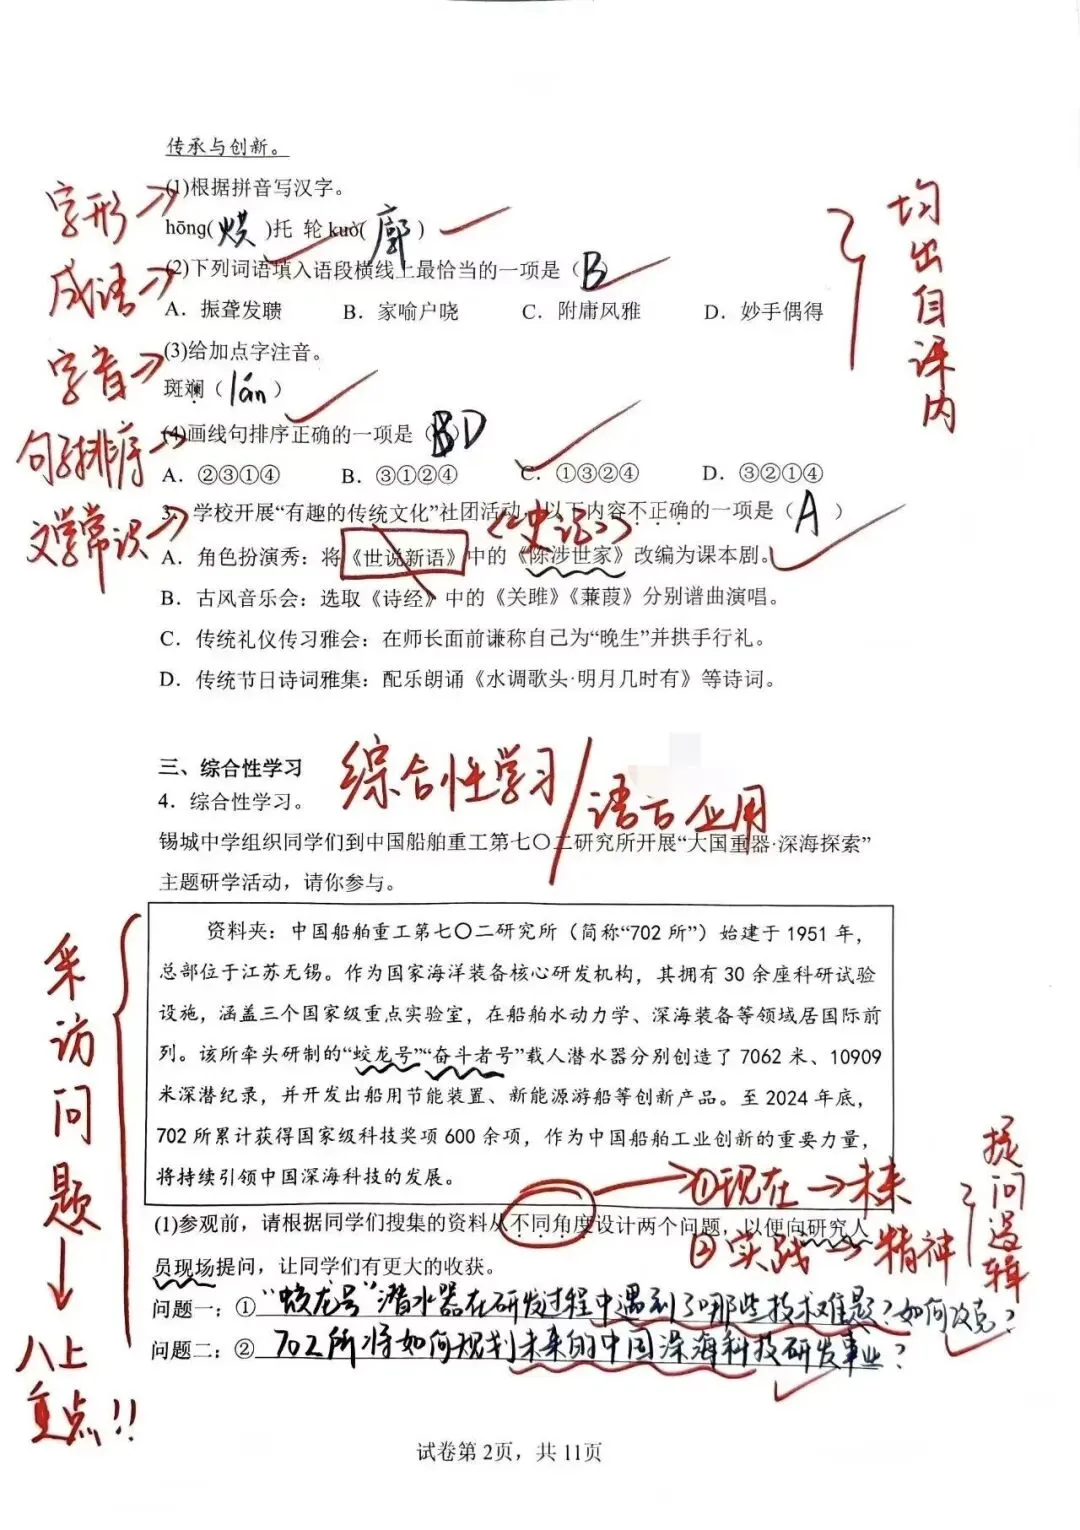 传承与创新。
字形
(1)根据拼音写汉字。
均出自课内
hōng(烘)托 轮 kuò(廓)
成语
(2)下列词语填入语段横线上最恰当的一项是（B）
A．振聋发聩 B．家喻户晓 C．附庸风雅 D．妙手偶得
字音
(3)给加点字注音。
斑斓（lán）
句子排序
(4)画线句排序正确的一项是（D）
A．②③①④ B．③①②④ C．①③②④ D．③②①④
文学常识
3．学校开展“有趣的传统文化”社团活动，以下内容不正确的一项是（A）
《史记》
A．角色扮演秀：将《世说新语》中的《陈涉世家》改编为课本剧。
B．古风音乐会：选取《诗经》中的《关雎》《蒹葭》分别谱曲演唱。
C．传统礼仪传习雅会：在师长面前谦称自己为“晚生”并拱手行礼。
D．传统节日诗词雅集：配乐朗诵《水调歌头·明月几时有》等诗词。
三、综合性学习
综合性学习/语言应用
4．综合性学习。
锡城中学组织同学们到中国船舶重工第七〇二研究所开展“大国重器·深海探索”
主题研学活动，请你参与。
采访问题
八上重点!!
资料夹：中国船舶重工第七〇二研究所（简称“702 所”）始建于 1951 年，
总部位于江苏无锡。作为国家海洋装备核心研发机构，其拥有 30 余座科研试验
设施，涵盖三个国家级重点实验室，在船舶水动力学、深海装备等领域居国际前
列。该所牵头研制的“蛟龙号”“奋斗者号”载人潜水器分别创造了 7062 米、10909
米深潜纪录，并开发出船用节能装置、新能源游船等创新产品。至 2024 年底，
702 所累计获得国家级科技奖项 600 余项，作为中国船舶工业创新的重要力量，
将持续引领中国深海科技的发展。
①现在→未来
②实践→精神
提问逻辑
(1)参观前，请根据同学们搜集的资料从不同角度设计两个问题，以便向研究人
员现场提问，让同学们有更大的收获。
问题一：①“蛟龙号”潜水器在研发过程中遇到了哪些技术难题？如何攻克？
问题二：②702所将如何规划未来的中国深海科技研发事业？
试卷第 2页，共 11页